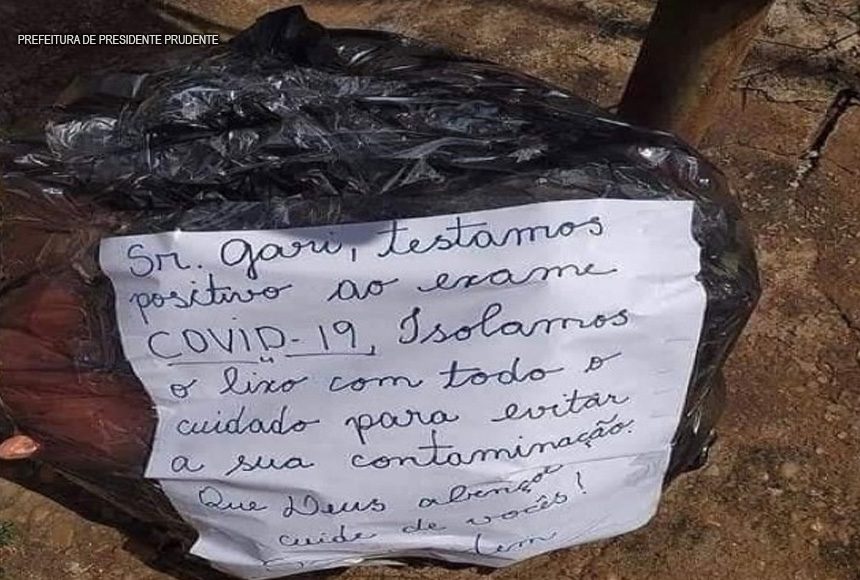 PREFEITURA DE PRESIDENTE PRUDENTE
Sr. Gari, testamos
positivo ao exame
COVID-19, Isolamos
o lixo com todo o
cuidado para evitar
a sua contaminação.
Que Deus abençoe
cuide de vocês!